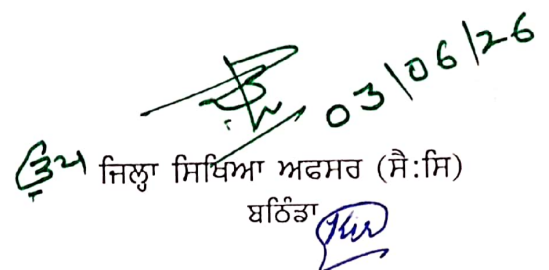 03/06/26
ਉਪ ਜਿਲ੍ਹਾ ਸਿਖਿਆ ਅਫਸਰ (ਸੈ:ਸਿ)
ਬਠਿੰਡਾ